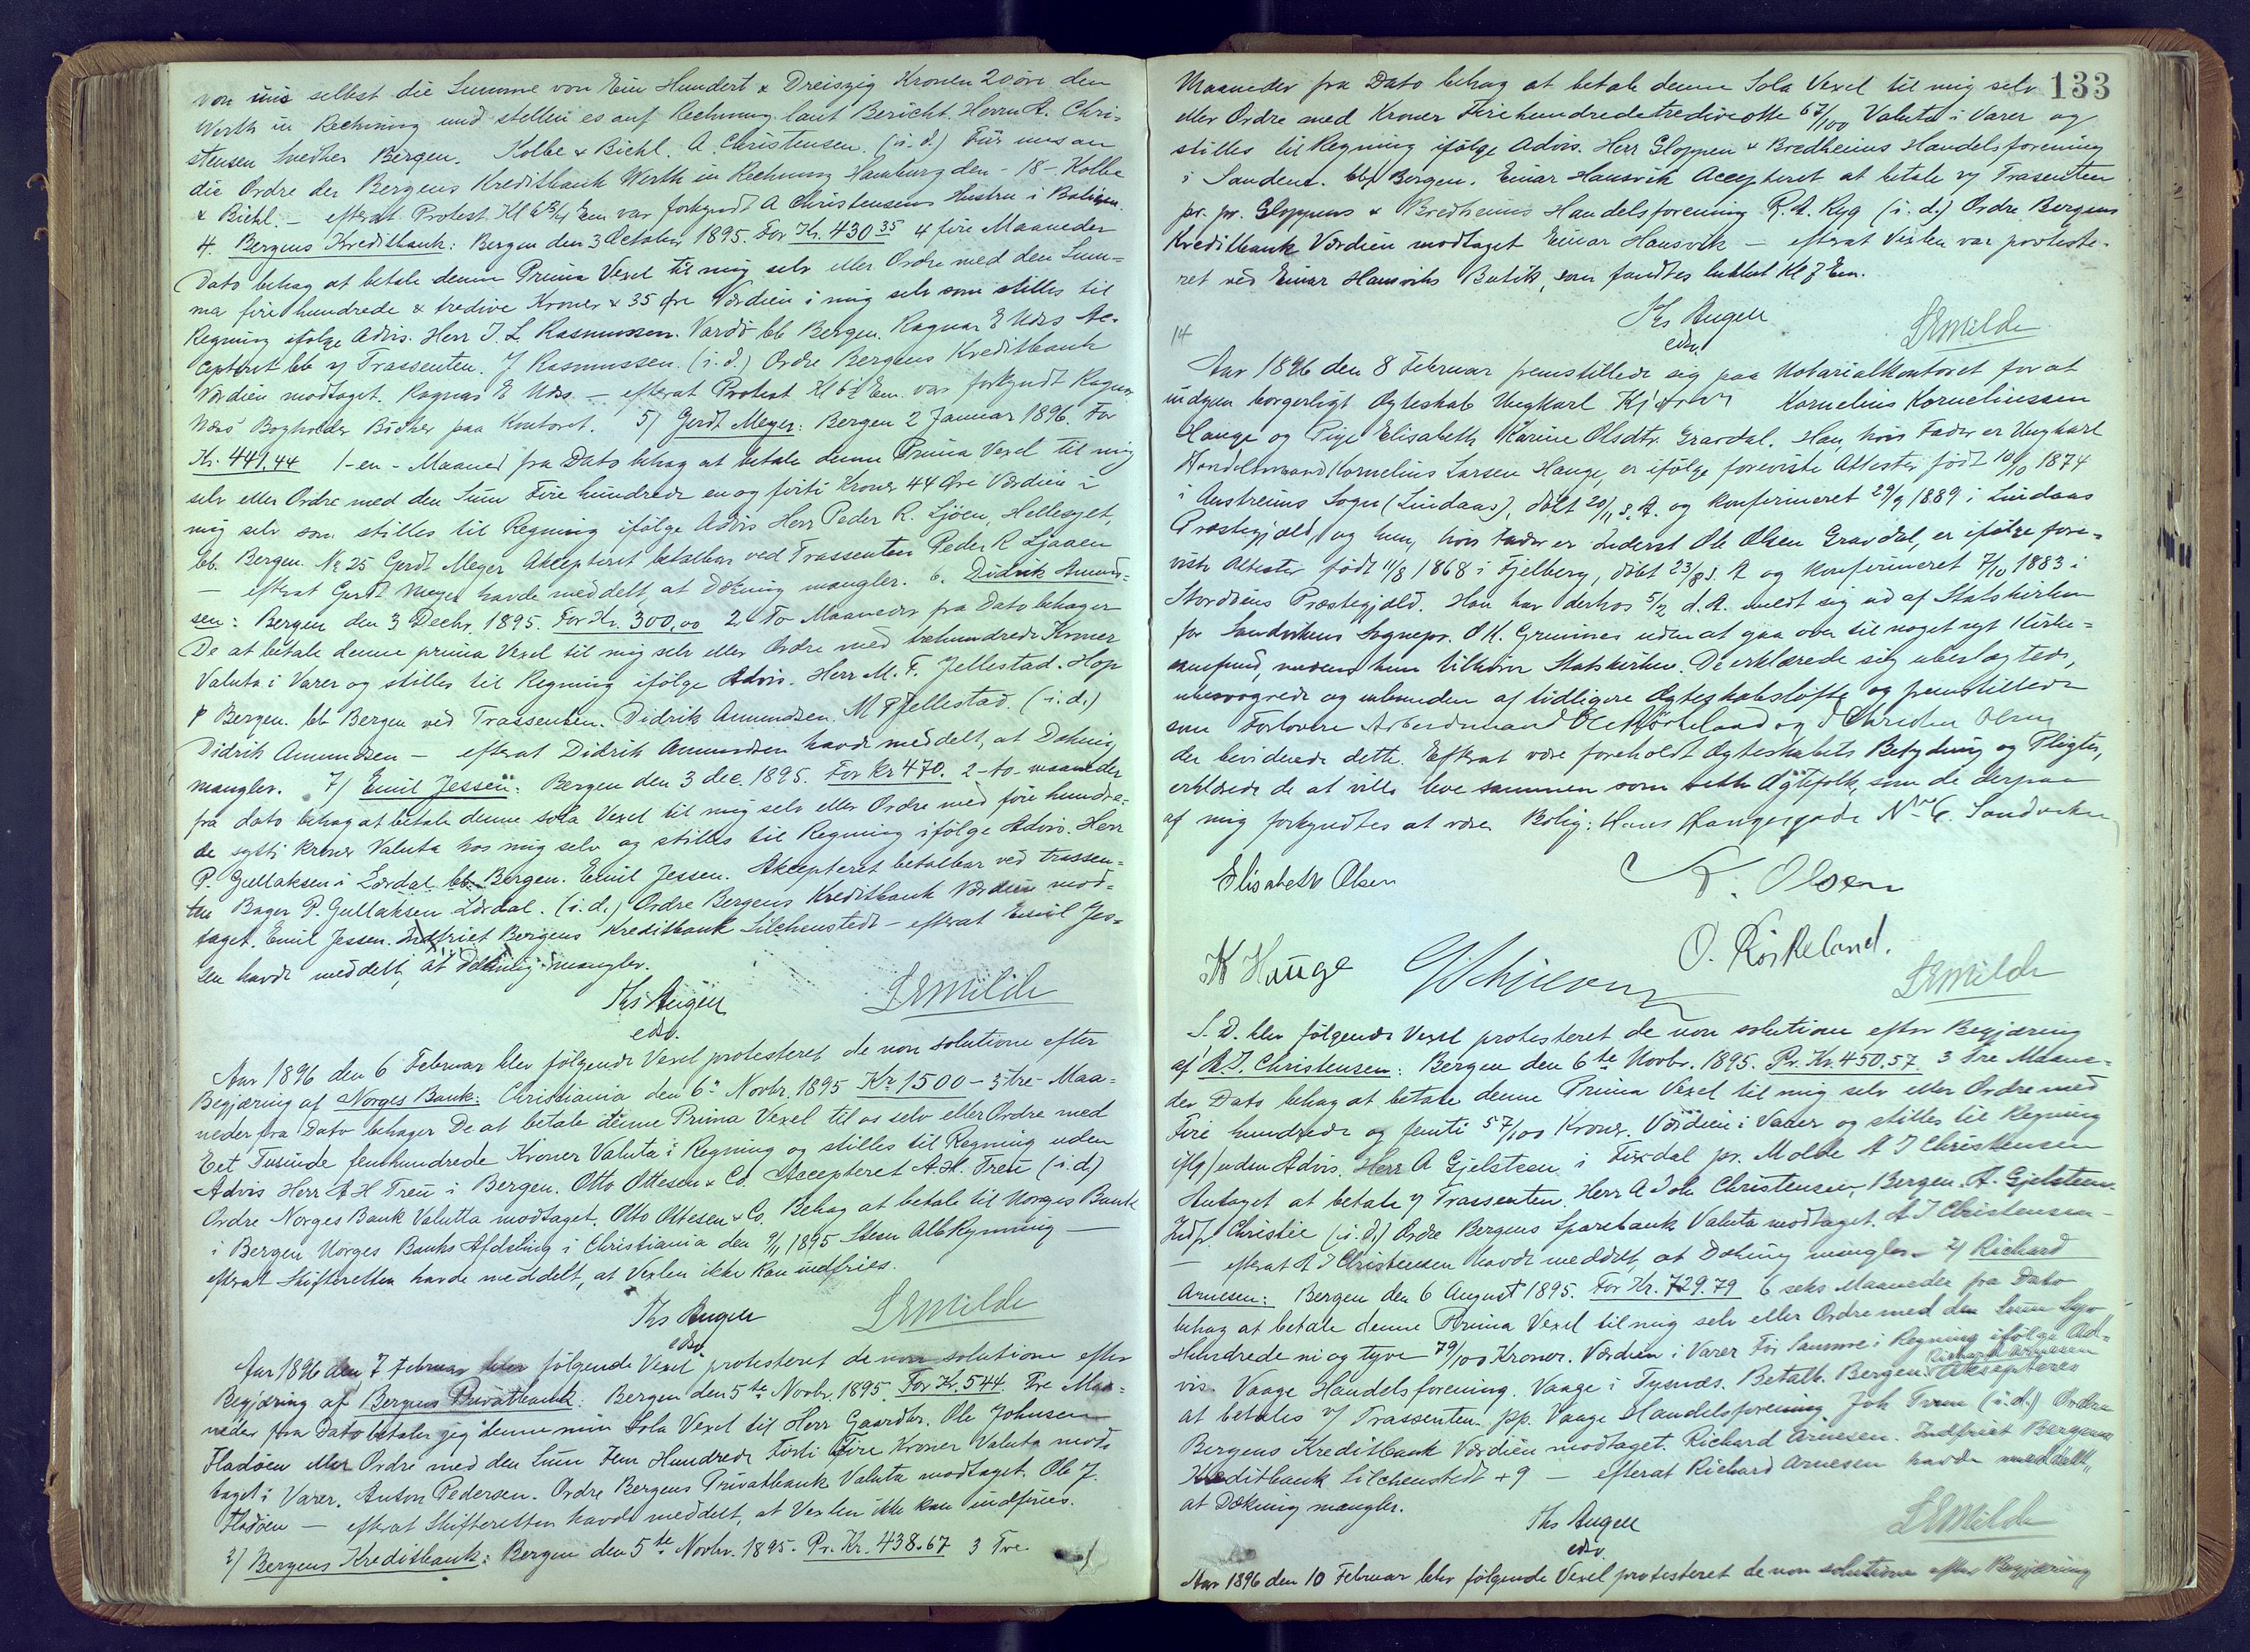 von uns selbst die Summe von Ein Hundert & Dreiszig Kronen 20 öre den
Werth in Rechnung und stellen es auf Rechnung laut Bericht. Herrn A. Chri-
stensen Bergen. Kolbe & Biehl. A. Christensen. (i. d.) Für uns an
die Ordre der Bergens Kreditbank Werth in Rechnung Hamburg den - 18 - Kolbe
& Biehl. - efterat Protest Kl 6 3/4 Em var forkyndt A Christensens Hustru i Boligen.
4. Bergens Kreditbank: Bergen den 3 October 1895. For Kr. 430 35 4 fire Maaneder
Dato behag at betale denne Prima Vexel til mig selv eller Ordre med den Sum-
ma fire hundrede & tredive Kroner & 35 Øre Værdien i mig selv som stilles til
Regning ifølge Advis. Herr J. L. Rasmussen. Vardö bb Bergen. Ragnar E Næs Ac-
cepteret bb v/ Trassenten. J Rasmussen. (i. d.) Ordre Bergens Kreditbank
Værdien modtaget. Ragnar E Næs - efterat Protest Kl 6 1/2 Em. var forkyndt Ragnar
Næs' Bogholder Böcker paa Kontoret. 5) Gerdt Meyer: Bergen 2 Januar 1896. For
Kr. 441,44 1 - en - Maaned fra Dato behag at betale denne Prima Vexel til mig
selv eller Ordre med den Sum Fire hundrede en og förti Kroner 44 Øre Værdien i
mig selv som stilles til Regning ifölge Advis Herr Peder R. Ljöen, Hellesylt,
bb. Bergen. No 25 Gerdt Meyer Akcepteret betalbar ved Trassenten Peder R Ljöen
- efterat Gerdt Meyer havde meddelt, at Dækning mangler. 6. Didrik Amund-
sen: Bergen den 3 Decbr. 1895. For Kr. 300,00 2 To Maaneder fra Dato behager
De at betale denne prima Vexel til mig selv eller Ordre med trehundrede Kroner
Valuta i Varer og stilles til Regning ifölge Advis. Herr M. T. Jellestad. Hop
p Bergen. bb Bergen ved Trassenten. Didrik Amundsen. M T Jellestad. (i. d.)
Didrik Amundsen - efterat Didrik Amundsen havde meddelt, at Dækning
mangler. 7) Emil Jessen: Bergen den 3 dec. 1895. For Kr 470. 2 - to - maaneder
fra dato behag at betale denne sola Vexel til mig selv eller Ordre med fire hundre-
de sytti kroner Valuta hos mig selv og stilles til Regning ifölge Advis. Herr
P. Gullaksen i Lærdal bb. Bergen. Emil Jessen. Akcepteret betalbar ved trassen-
ten Bager P. Gullaksen Lærdal. (i. d.) Ordre Bergens Kreditbank Værdien mod-
taget. Emil Jessen. Indfriet Bergens Kreditbank Lilchenstedt - efterat Emil Jes-
sen havde meddelt, at Dækning mangler.
Ths Angell
edsv.
L E Milde
Aar 1896 den 6 Februar blev følgende Vexel protesteret de non solutione efter
Begjæring af Norges Bank: Christiania den 6te Novbr. 1895 Kr 1500 - 3 tre - Maa-
neder fra Dato behager De at betale denne Prima Vexel til os selv eller Ordre med
Eet Tusinde femhundrede Kroner Valuta i Regning og stilles til Regning uden
Advis Herr A H Treu i Bergen. Otto Ottesen & Co. Accepteret A. H. Treu (i. d.)
Ordre Norges Bank Valutta modtaget. Otto Ottesen & Co. Behag at betale til Norges Bank
i Bergen Norges Banks Afdeling i Christiania den 9/11 1895 Steen
efterat Skifteretten havde meddelt, at Vexlen ikke kan indfries.
Ths Angell
edsv.
L E Milde
Aar 1896 den 7 Februar blev følgende Vexel protesteret de non solutione efter
Begjæring af Bergens Privatbank: Bergen den 5te Novbr. 1895. For Kr. 544. Tre Maa-
neder fra Dato betaler jeg denne min Sola Vexel til Herr Gaardbr. Ole Johnsen
Fladöen eller Ordre med den Sum Fem Hundrede Förti Fire Kroner Valuta mod-
taget i Varer. Anton Pedersen. Ordre Bergens Privatbank Valuta modtaget. Ole J.
Fladöen - efterat Skifteretten havde meddelt, at Vexlen ikke kan indfries.
2) Bergens Kreditbank: Bergen den 5te Novbr. 1895. Pr. Kr. 438.67 3 Tre
133
Maaneder fra Dato behag at betale denne Sola Vexel til mig selv
eller Ordre med Kroner Firehundredetrediveotte 67/100 Valuta i Varer og
stilles til Regning ifølge Advis. Herr Gloppen & Bredheims Handelsforening
i Sandene. bb/ Bergen. Einar Hansvik Accepteret at betale v/ Trasenten
pr. pr. Gloppens & Bredheims Handelsforening R. A. Ryg (i. d.) Ordre Bergens
Kreditbank Værdien modtaget Einar Hansvik - efterat Vexlen var proteste-
ret ved Einar Hansviks Butik, som fandtes lukket Kl 7 Em.
Ths Angell
edsv.
L E Milde
14
Aar 1896 den 8 Februar fremstillede sig paa Notarialkontoret for at
indgaa borgerligt Ægteskab Ungkarl Kornelius Korneliussen
Hauge og Pige Elisabeth Karine Olsdtr. Gravdal. Han, hvis Fader er Ungkarl
Handelsmand Kornelius Larsen Hauge, er ifölge foreviste Attester födt 10/10 1874
i Austreims Sogn (Lindaas), döbt 20/11 s. A. og konfirmeret 29/9 1889 i Lindaas
Præstegjæld, og hun, hvis Fader er Inderst Ole Olsen Gravdal, er ifölge fore-
viste Attester födt 11/8 1868 i Fjelberg, döbt 23/8 s. A og konfirmeret 7/10 1883 i
Stordöens Præstegjæld. Han har derhos 5/2 d. A. meldt sig ud af Statskirken
for Sandvikens Sognepr. O K. Grimnes uden at gaa over til noget nyt Kirke-
samfund, medens hun tilhörer Statskirken. De erklærede sig ubeslægtede,
ubesvogrede og ubundne af tidligere Ægteskabslöfte og fremstillede
som Forlovere Arbeidsmand O Kirkeland og d Christen Olsen
der bevidnede dette. Efterat være foreholdt Ægteskabets Betydning og Pligter,
erklærede de at ville leve sammen som rette Ægtefolk, som de derpaa
af mig forkyndtes at være Bolig: Hans Haugesgade No 6. Sandviken
Elisabeth Olsen
K. Olsen
K Hauge
O. Kirkeland.
L E Milde
S. D. blev følgende Vexel protesteret de non solutione efter Begjæring
af A J. Christensen: Bergen den 6te Novbr. 1895. Pr. Kr. 450.57 3 Tre Maane-
der Dato behag at betale denne Prima Vexel til mig selv eller Ordre med
Fire hundrede og femti 57/100 Kroner. Værdien i Varer og stilles til Regning
iflg/ uden Advis. Herr A Gjelsteen i Fixdal pr. Molde A J Christensen
Antaget at betale v/ Trassenten. Herr A Joh. Christensen, Bergen. A. Gjelsteen.
Indf. Christie (i. d.) Ordre Bergens Sparebank Valuta modtaget. A J Christensen -
- efterat A J Christensen havde meddelt, at Dækning mangler - 2) Richard
Arnesen: Bergen den 6 August 1895. For Kr. 729.79 6 seks Maaneder fra Dato
behag at betale denne Prima Vexel til mig selv eller Ordre med den Sum Syv
Hundrede ni og tyve 79/100 Kroner. Værdien i Varer For Samme i Regning ifölge Ad-
vis. Vaage Handelsforening. Vaage i Tysnæs. Betalb. Bergen. Richard Arnesen Aksepteres
at betales v/ Trassenten. pp. Vaage Handelsforening Joh Tveem (i. d.) Ordre
Bergens Kreditbank Værdien modtaget. Richard Arnesen. Indfriet Bergens
Kreditbank Lilchenstedt + 9 - efterat Richard Arnesen havde meddelt,
at Dækning mangler.
Ths Angell
edsv.
L E Milde
Aar 1896 den 10 Februar blev følgende Vexel protesteret de non solutione efter Begjæring